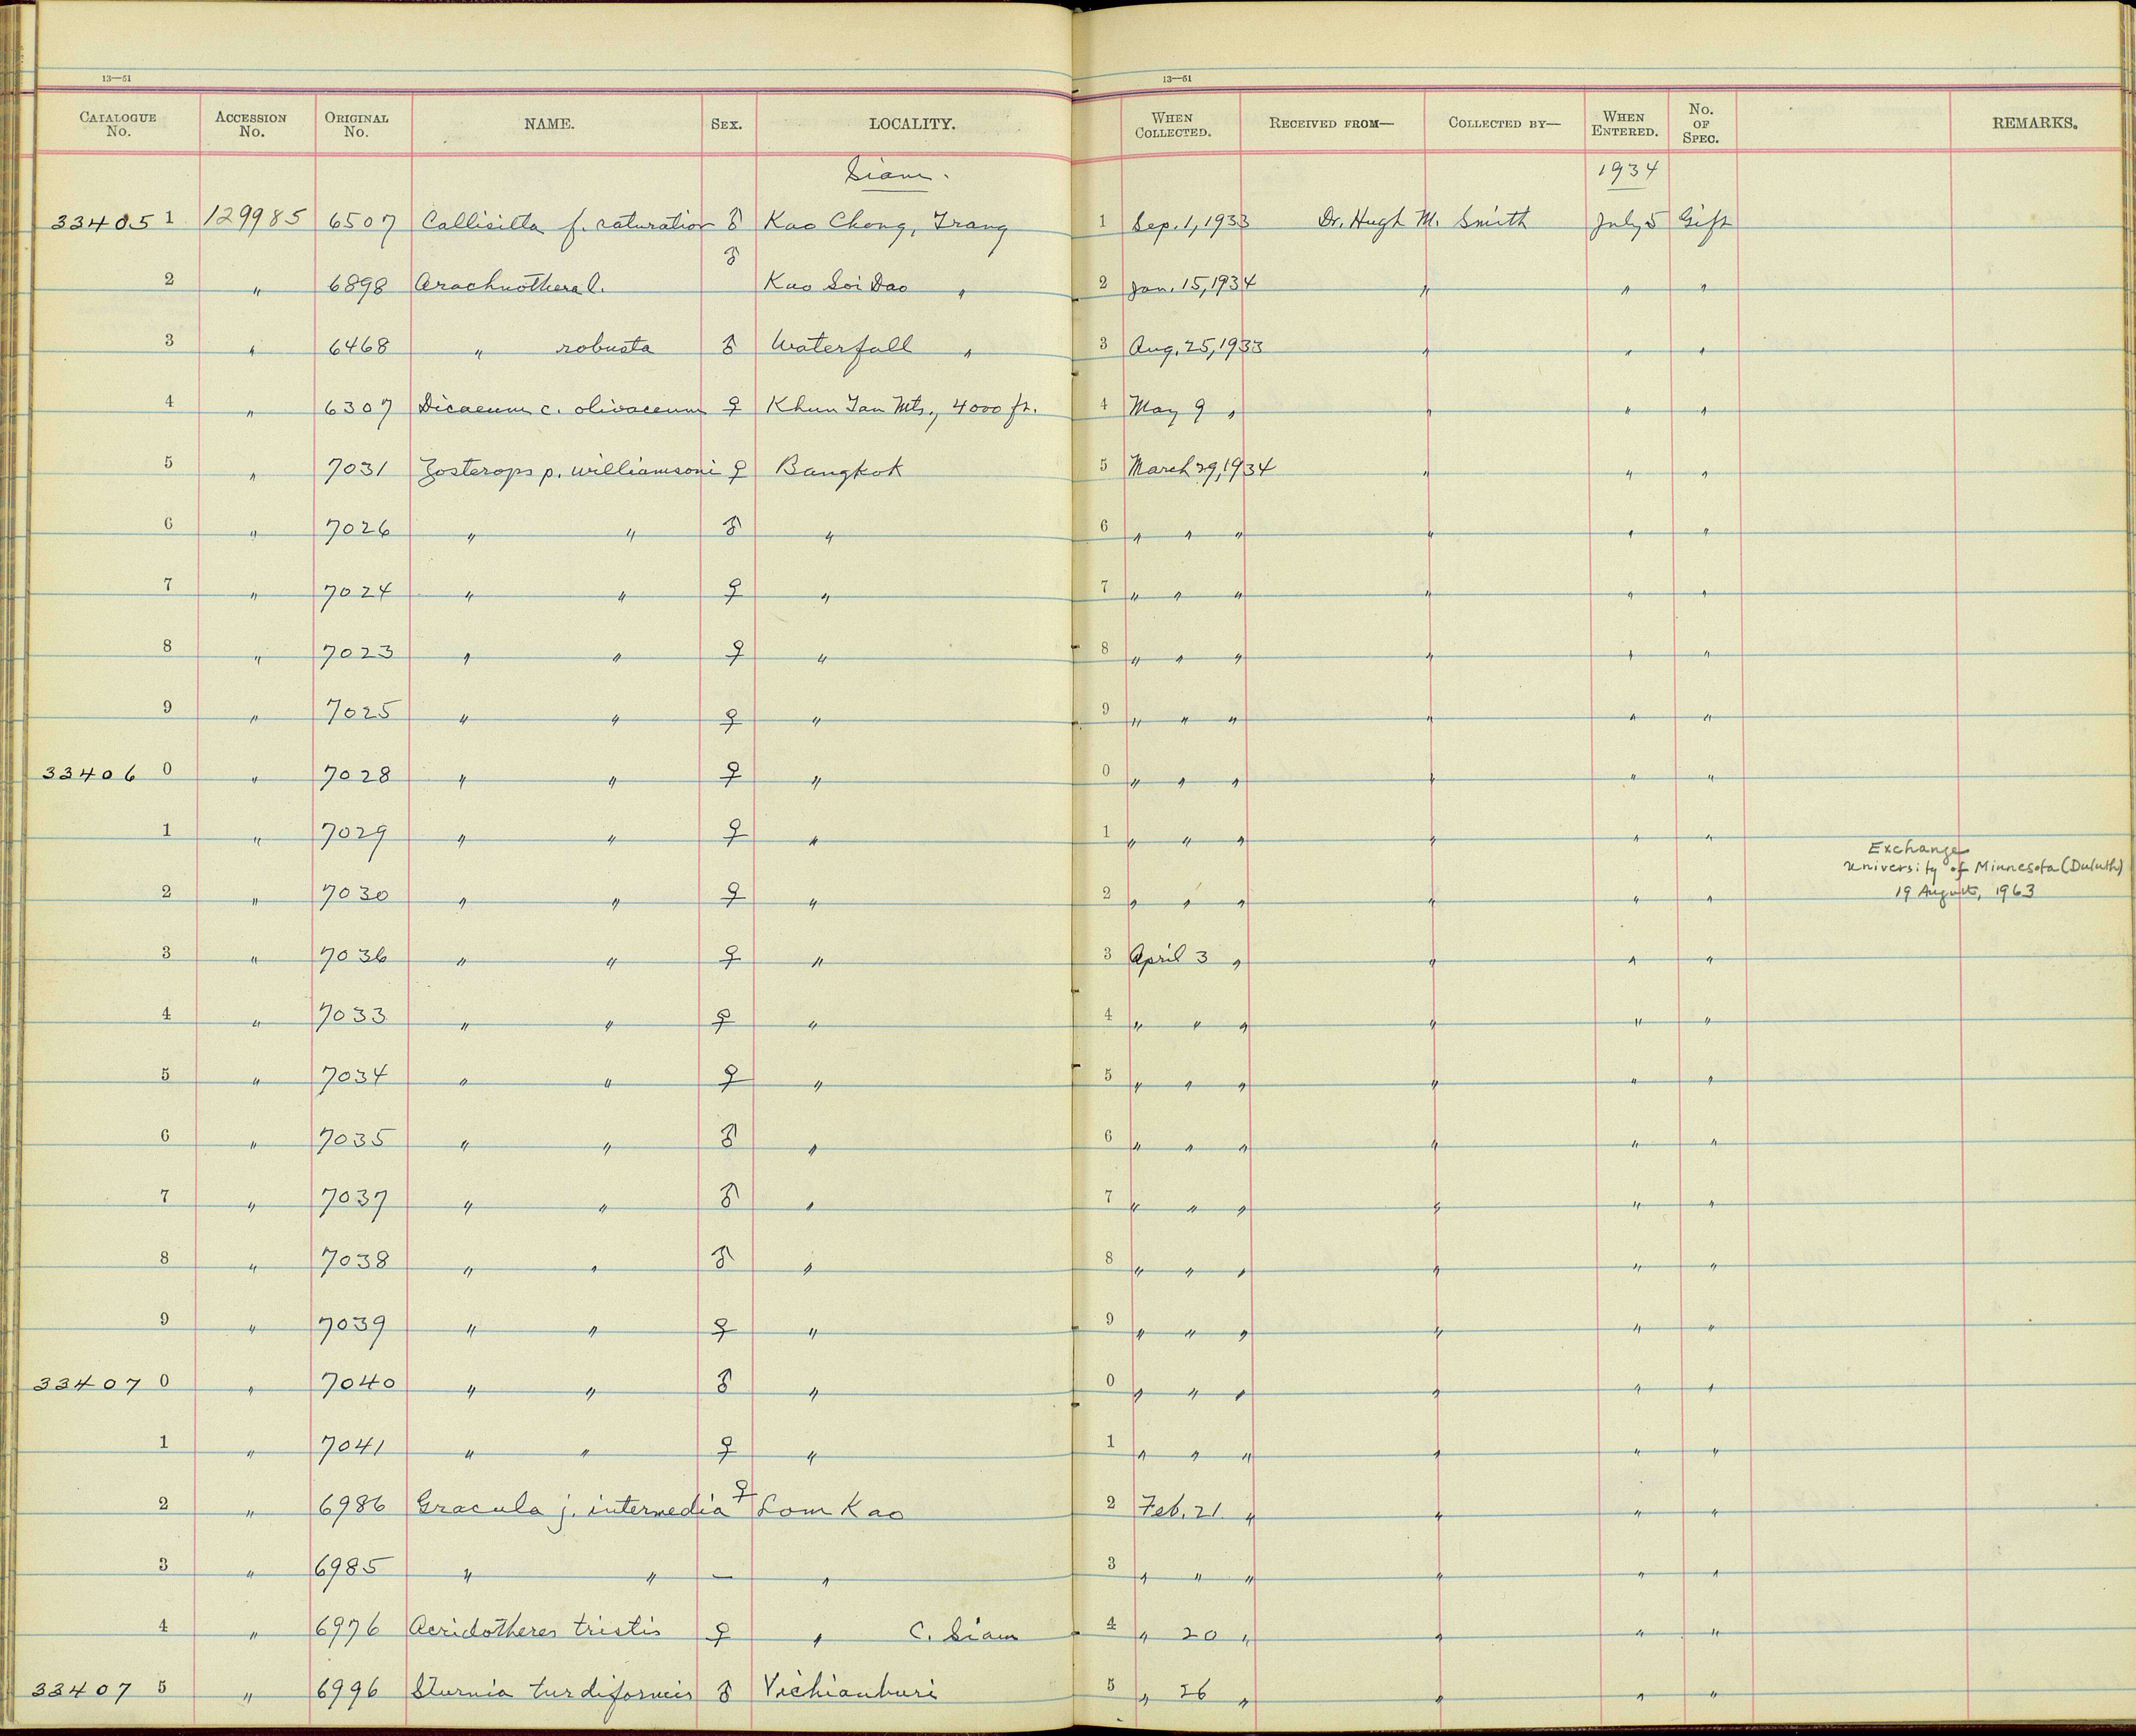 13—51 13—51
CATALOGUE No. ACCESSION No. ORIGINAL No. NAME. SEX. LOCALITY. WHEN COLLECTED. RECEIVED FROM— COLLECTED BY— WHEN ENTERED. No. OF SPEC. REMARKS.
Siam. 1934
33405 1 129985 6507 Callisitta f. saturatior ♂ Kao Chong, Trang 1 Sep. 1, 1933 Dr. Hugh M. Smith July 5 Gift
2 " 6898 Arachnothera l. ♂ Kao Soi Dao " 2 Jan. 15, 1934 " " "
3 " 6468 " robusta ♂ Waterfall " 3 Aug. 25, 1933 " " "
4 " 6307 Dicaeum c. olivaceum ♀ Khun Tan Mts., 4000 ft. 4 May 9 " " " "
5 " 7031 Zosterops p. williamsoni ♀ Bangkok 5 March 29, 1934 " " "
6 " 7026 " " ♂ " 6 " " " " " "
7 " 7024 " " ♀ " 7 " " " " " "
8 " 7023 " " ♀ " 8 " " " " " "
9 " 7025 " " ♀ " 9 " " " " " "
33406 0 " 7028 " " ♀ " 0 " " " " " "
1 " 7029 " " ♀ " 1 " " " " " "
Exchange
University of Minnesota (Duluth)
2 " 7030 " " ♀ " 2 " " " " " " 19 August, 1963
3 " 7036 " " ♀ " 3 April 3 " " " "
4 " 7033 " " ♀ " 4 " " " " " "
5 " 7034 " " ♀ " 5 " " " " " "
6 " 7035 " " ♂ " 6 " " " " " "
7 " 7037 " " ♂ " 7 " " " " " "
8 " 7038 " " ♂ " 8 " " " " " "
9 " 7039 " " ♀ " 9 " " " " " "
33407 0 " 7040 " " ♂ " 0 " " " " " "
1 " 7041 " " ♀ " 1 " " " " " "
2 " 6986 Gracula j. intermedia ♀ Lom Kao 2 Feb. 21 " " " "
3 " 6985 " " — " 3 " " " " " "
4 " 6976 Acridotheres tristis ♀ " C. Siam 4 " 20 " " " "
33407 5 " 6996 Sturnia turdiformis ♂ Vichianburi 5 " 26 " " " "